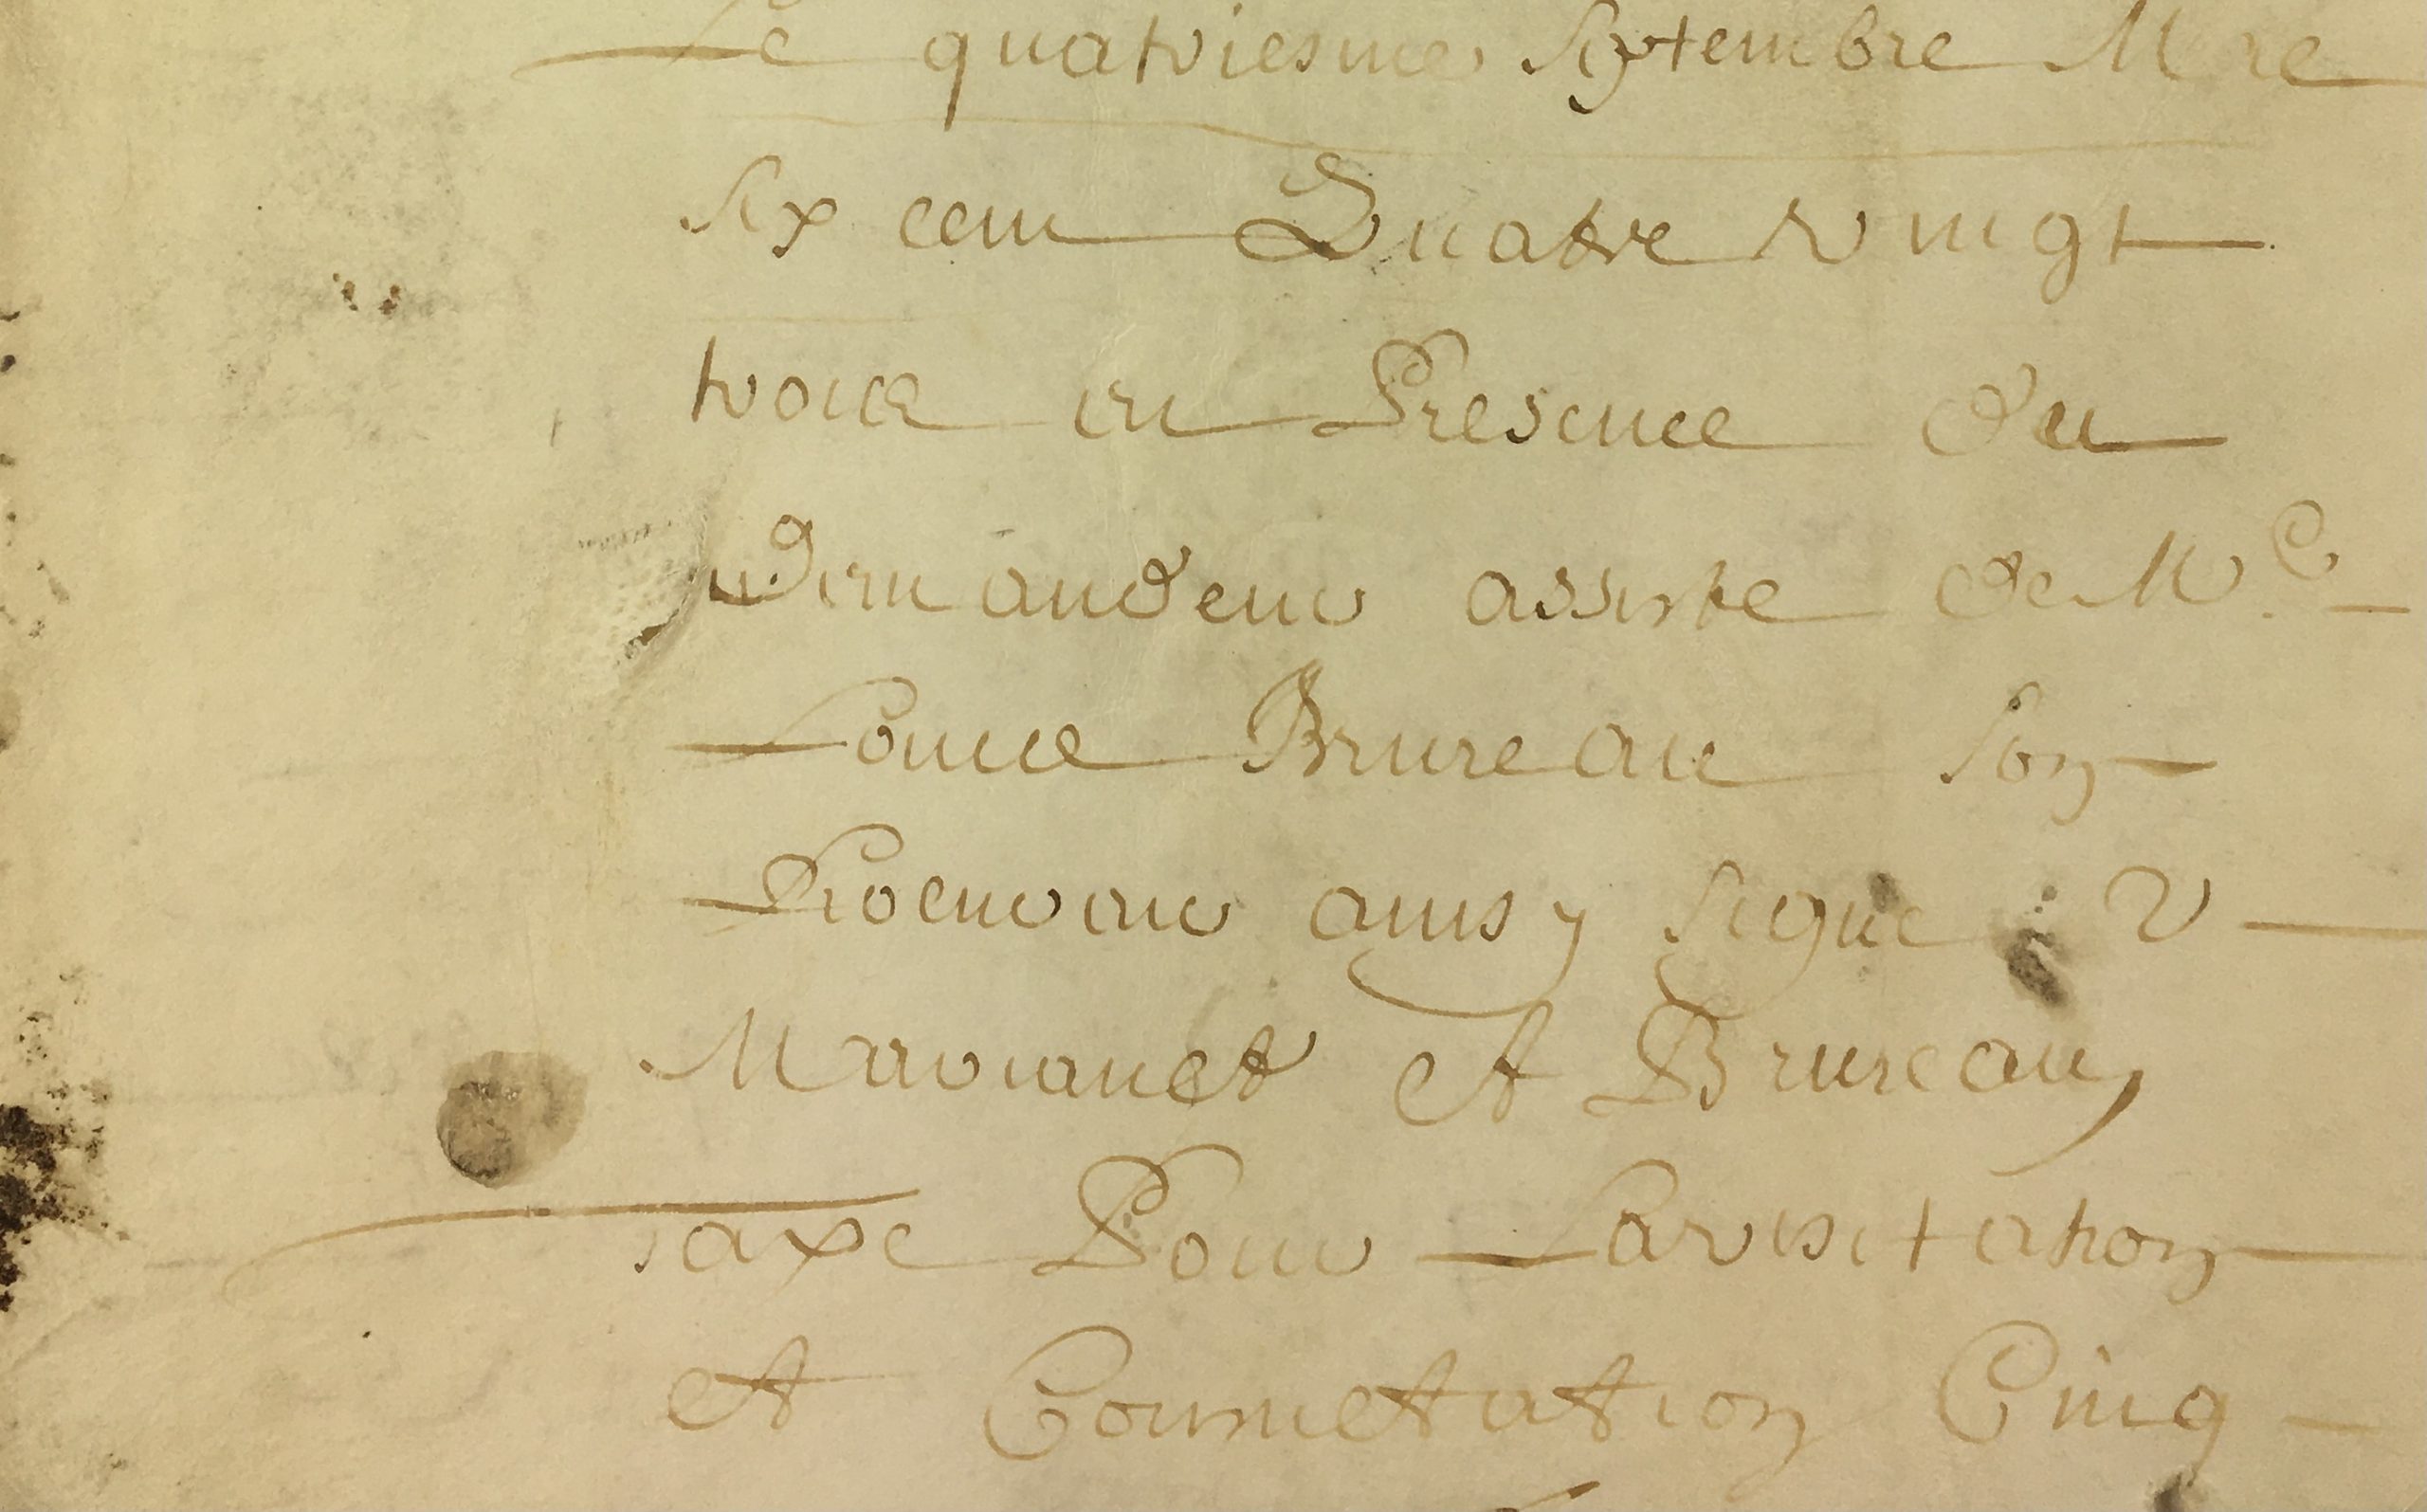 Le quatriesme Septembre M re
six cem Quatre vingt
troice en Presence du
demandeur assiste de Me
Louice Brureau son
Procureur ainsy signe : V
Mravianet et Brureau,
Taxe Pour La visitation
et Connettation Cinq